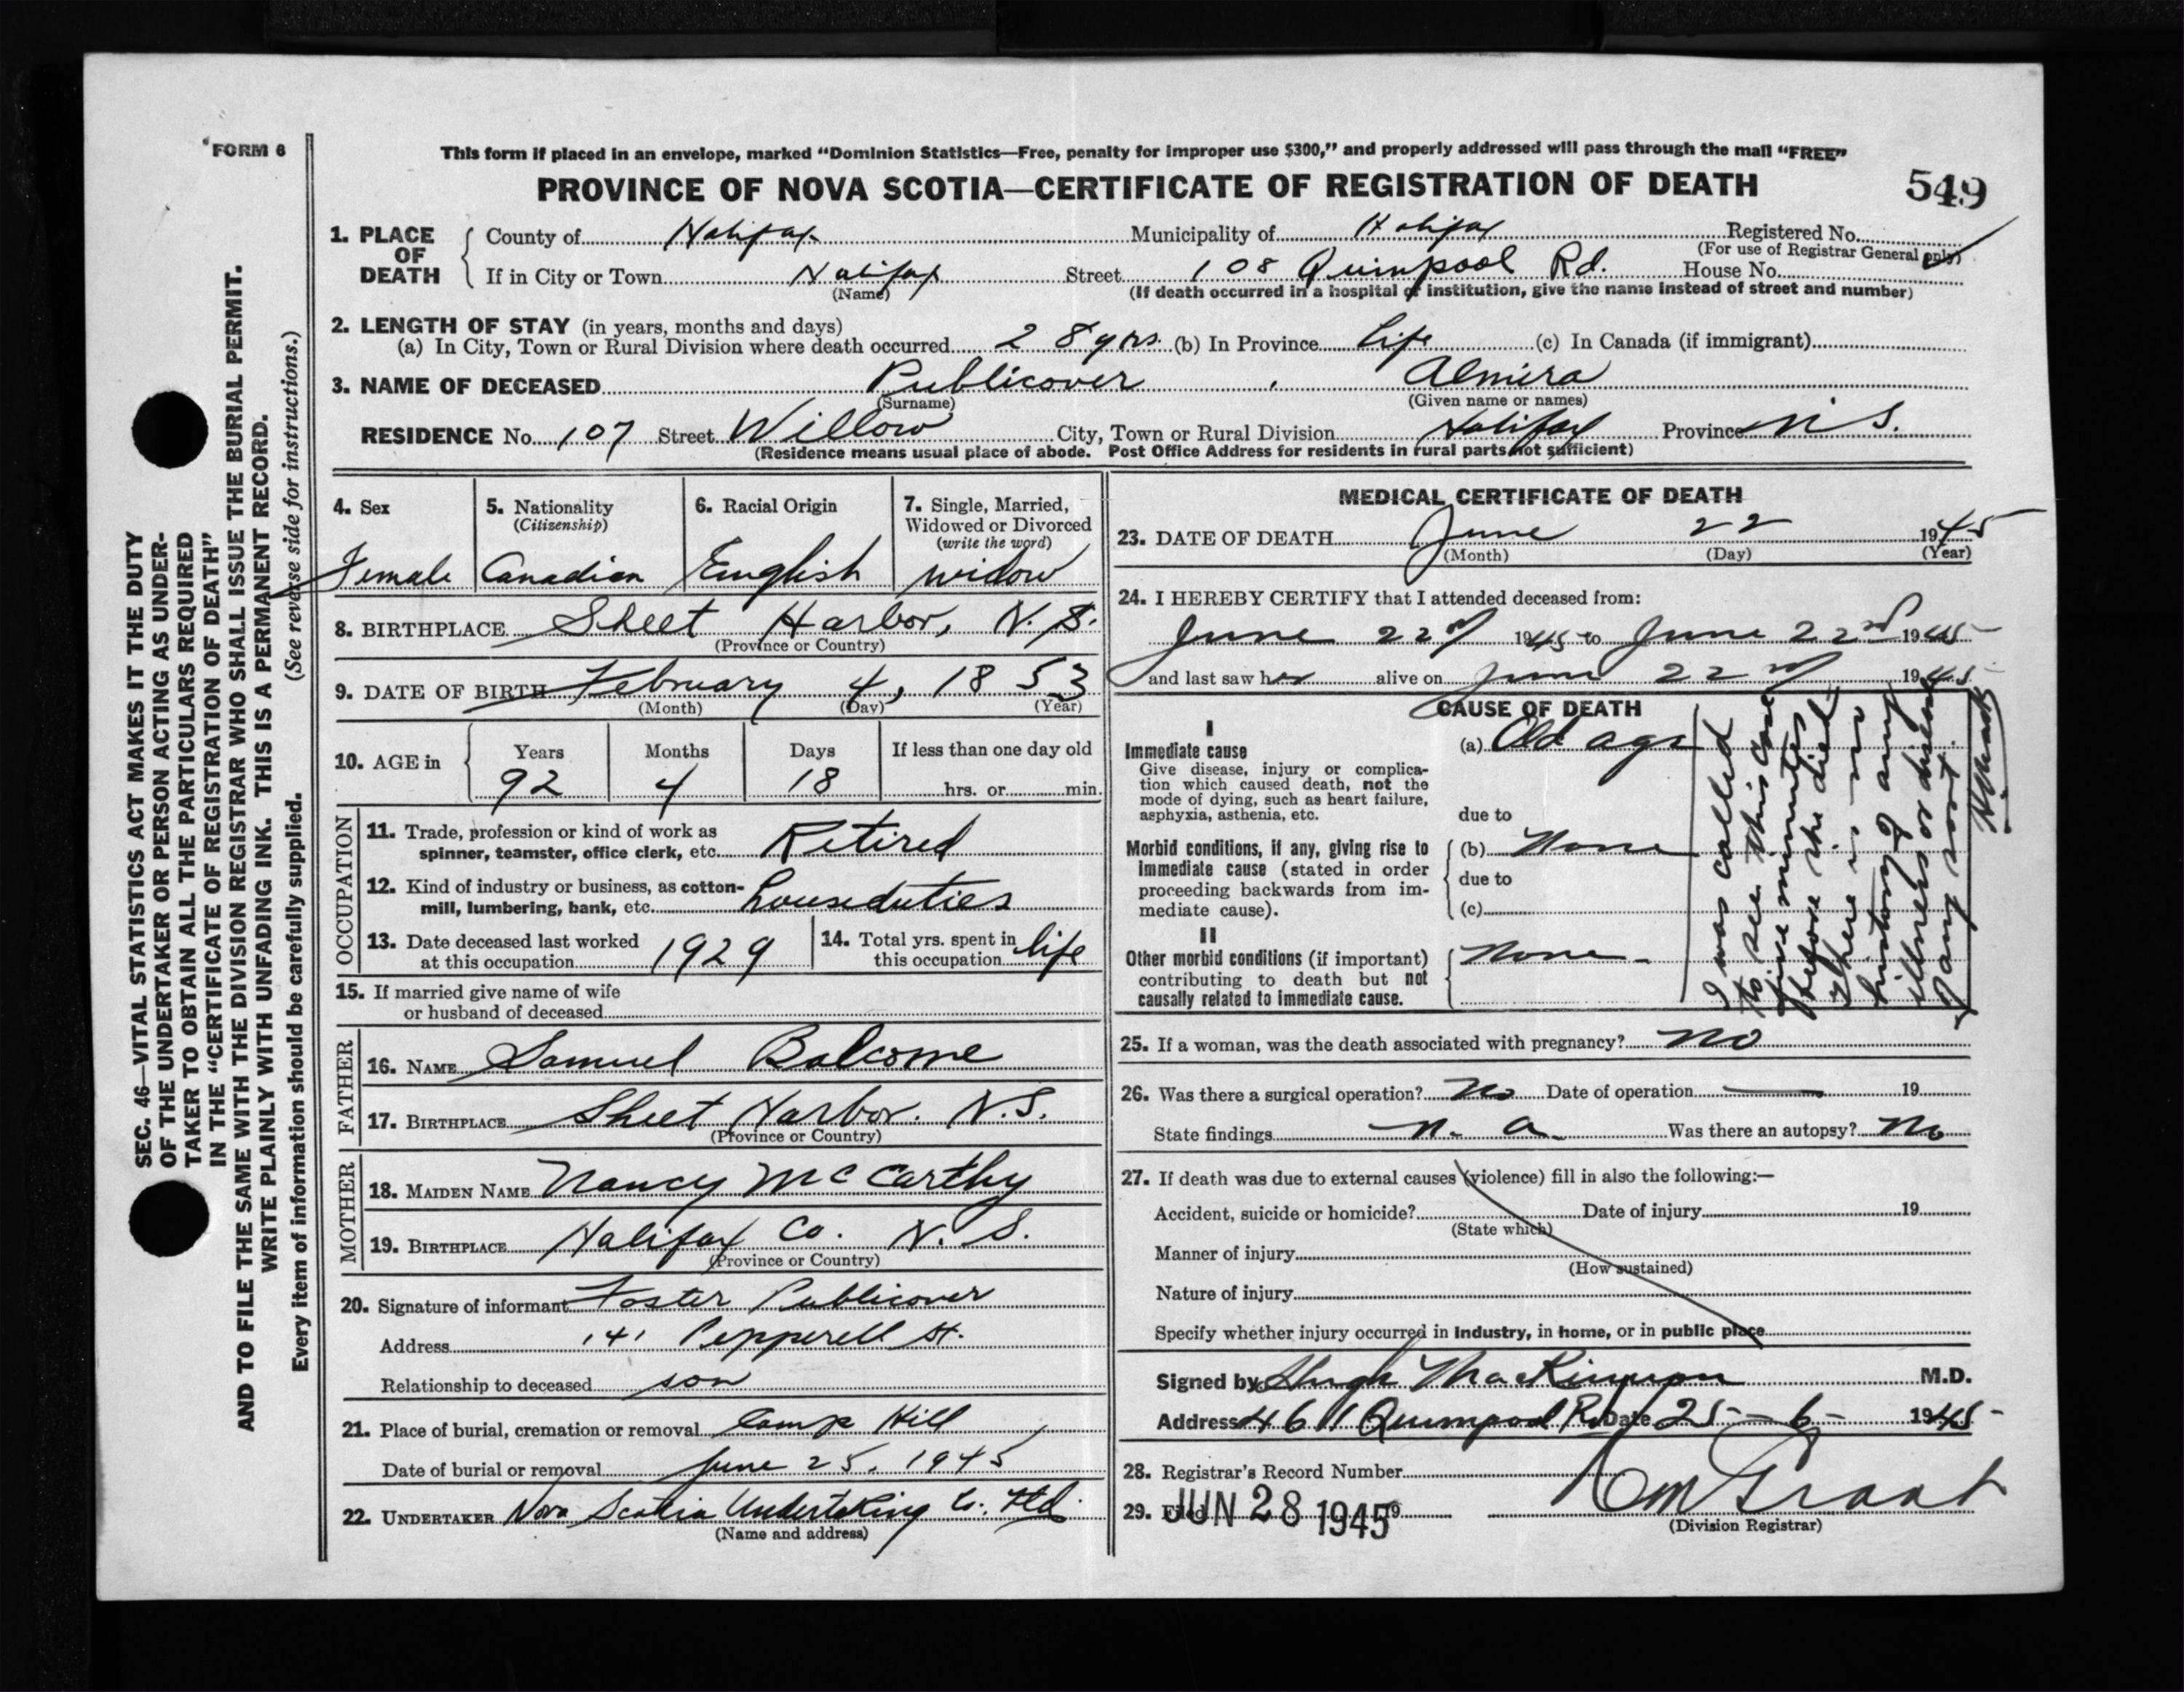 FORM 6
This form if placed in an envelope, marked “Dominion Statistics—Free, penalty for improper use $300,” and properly addressed will pass through the mail “FREE”
PROVINCE OF NOVA SCOTIA—CERTIFICATE OF REGISTRATION OF DEATH
549
1. PLACE OF DEATH
County of Halifax Municipality of Halifax Registered No.
(For use of Registrar General only)
If in City or Town Halifax Street 108 Quinpool Rd. House No.
(Name) (If death occurred in a hospital or institution, give the name instead of street and number)
2. LENGTH OF STAY (in years, months and days)
(a) In City, Town or Rural Division where death occurred 28 yrs. (b) In Province Life (c) In Canada (if immigrant)
3. NAME OF DECEASED Publicover , Almira
(Surname) (Given name or names)
RESIDENCE No. 107 Street Willow City, Town or Rural Division Halifax Province N S.
(Residence means usual place of abode. Post Office Address for residents in rural parts not sufficient)
4. Sex
Female
5. Nationality
(Citizenship)
Canadian
6. Racial Origin
English
7. Single, Married,
Widowed or Divorced
(write the word)
widow
8. BIRTHPLACE Sheet Harbor, N. S.
(Province or Country)
9. DATE OF BIRTH February 4, 1853
(Month) (Day) (Year)
10. AGE in
Years Months Days If less than one day old
92 4 18 hrs. or min.
OCCUPATION
11. Trade, profession or kind of work as
spinner, teamster, office clerk, etc. Retired
12. Kind of industry or business, as cotton-
mill, lumbering, bank, etc. houseduties
13. Date deceased last worked
at this occupation 1929
14. Total yrs. spent in
this occupation life
15. If married give name of wife
or husband of deceased
FATHER
16. NAME Samuel Balcome
17. BIRTHPLACE Sheet Harbor. N.S.
(Province or Country)
MOTHER
18. MAIDEN NAME Nancy McCarthy
19. BIRTHPLACE Halifax Co. N. S.
(Province or Country)
20. Signature of informant Foster Publicover
Address 141 Pepperell St.
Relationship to deceased son
21. Place of burial, cremation or removal Camp Hill
Date of burial or removal June 25, 1945
22. UNDERTAKER Nova Scotia Undertaking Co. Ltd.
(Name and address)
MEDICAL CERTIFICATE OF DEATH
23. DATE OF DEATH June 22 1945
(Month) (Day) (Year)
24. I HEREBY CERTIFY that I attended deceased from:
June 22nd 1945 to June 22nd 1945
and last saw her alive on June 22nd 1945
CAUSE OF DEATH
I
Immediate cause
Give disease, injury or complica-
tion which caused death, not the
mode of dying, such as heart failure,
asphyxia, asthenia, etc.
(a) Old age
due to
Morbid conditions, if any, giving rise to
immediate cause (stated in order
proceeding backwards from im-
mediate cause).
(b) None
due to
(c)
II
Other morbid conditions (if important)
contributing to death but not
causally related to immediate cause.
None
I was called
to see this case
five minutes
before she died.
There is no
history of any
illness or disease
of any sort.
25. If a woman, was the death associated with pregnancy? No
26. Was there a surgical operation? No Date of operation 19
State findings n. a. Was there an autopsy? No
27. If death was due to external causes (violence) fill in also the following:—
Accident, suicide or homicide? Date of injury 19
(State which)
Manner of injury
(How sustained)
Nature of injury
Specify whether injury occurred in industry, in home, or in public place
Signed by Hugh MacKinnon M.D.
Address 461 Quinpool Rd Date 25-6- 1945
28. Registrar's Record Number
29. Filed JUN 28 1945 19
(Division Registrar)
SEC. 46—VITAL STATISTICS ACT MAKES IT THE DUTY
OF THE UNDERTAKER OR PERSON ACTING AS UNDER-
TAKER TO OBTAIN ALL THE PARTICULARS REQUIRED
IN THE “CERTIFICATE OF REGISTRATION OF DEATH”
AND TO FILE THE SAME WITH THE DIVISION REGISTRAR WHO SHALL ISSUE THE BURIAL PERMIT.
WRITE PLAINLY WITH UNFADING INK. THIS IS A PERMANENT RECORD.
Every item of information should be carefully supplied. (See reverse side for instructions.)